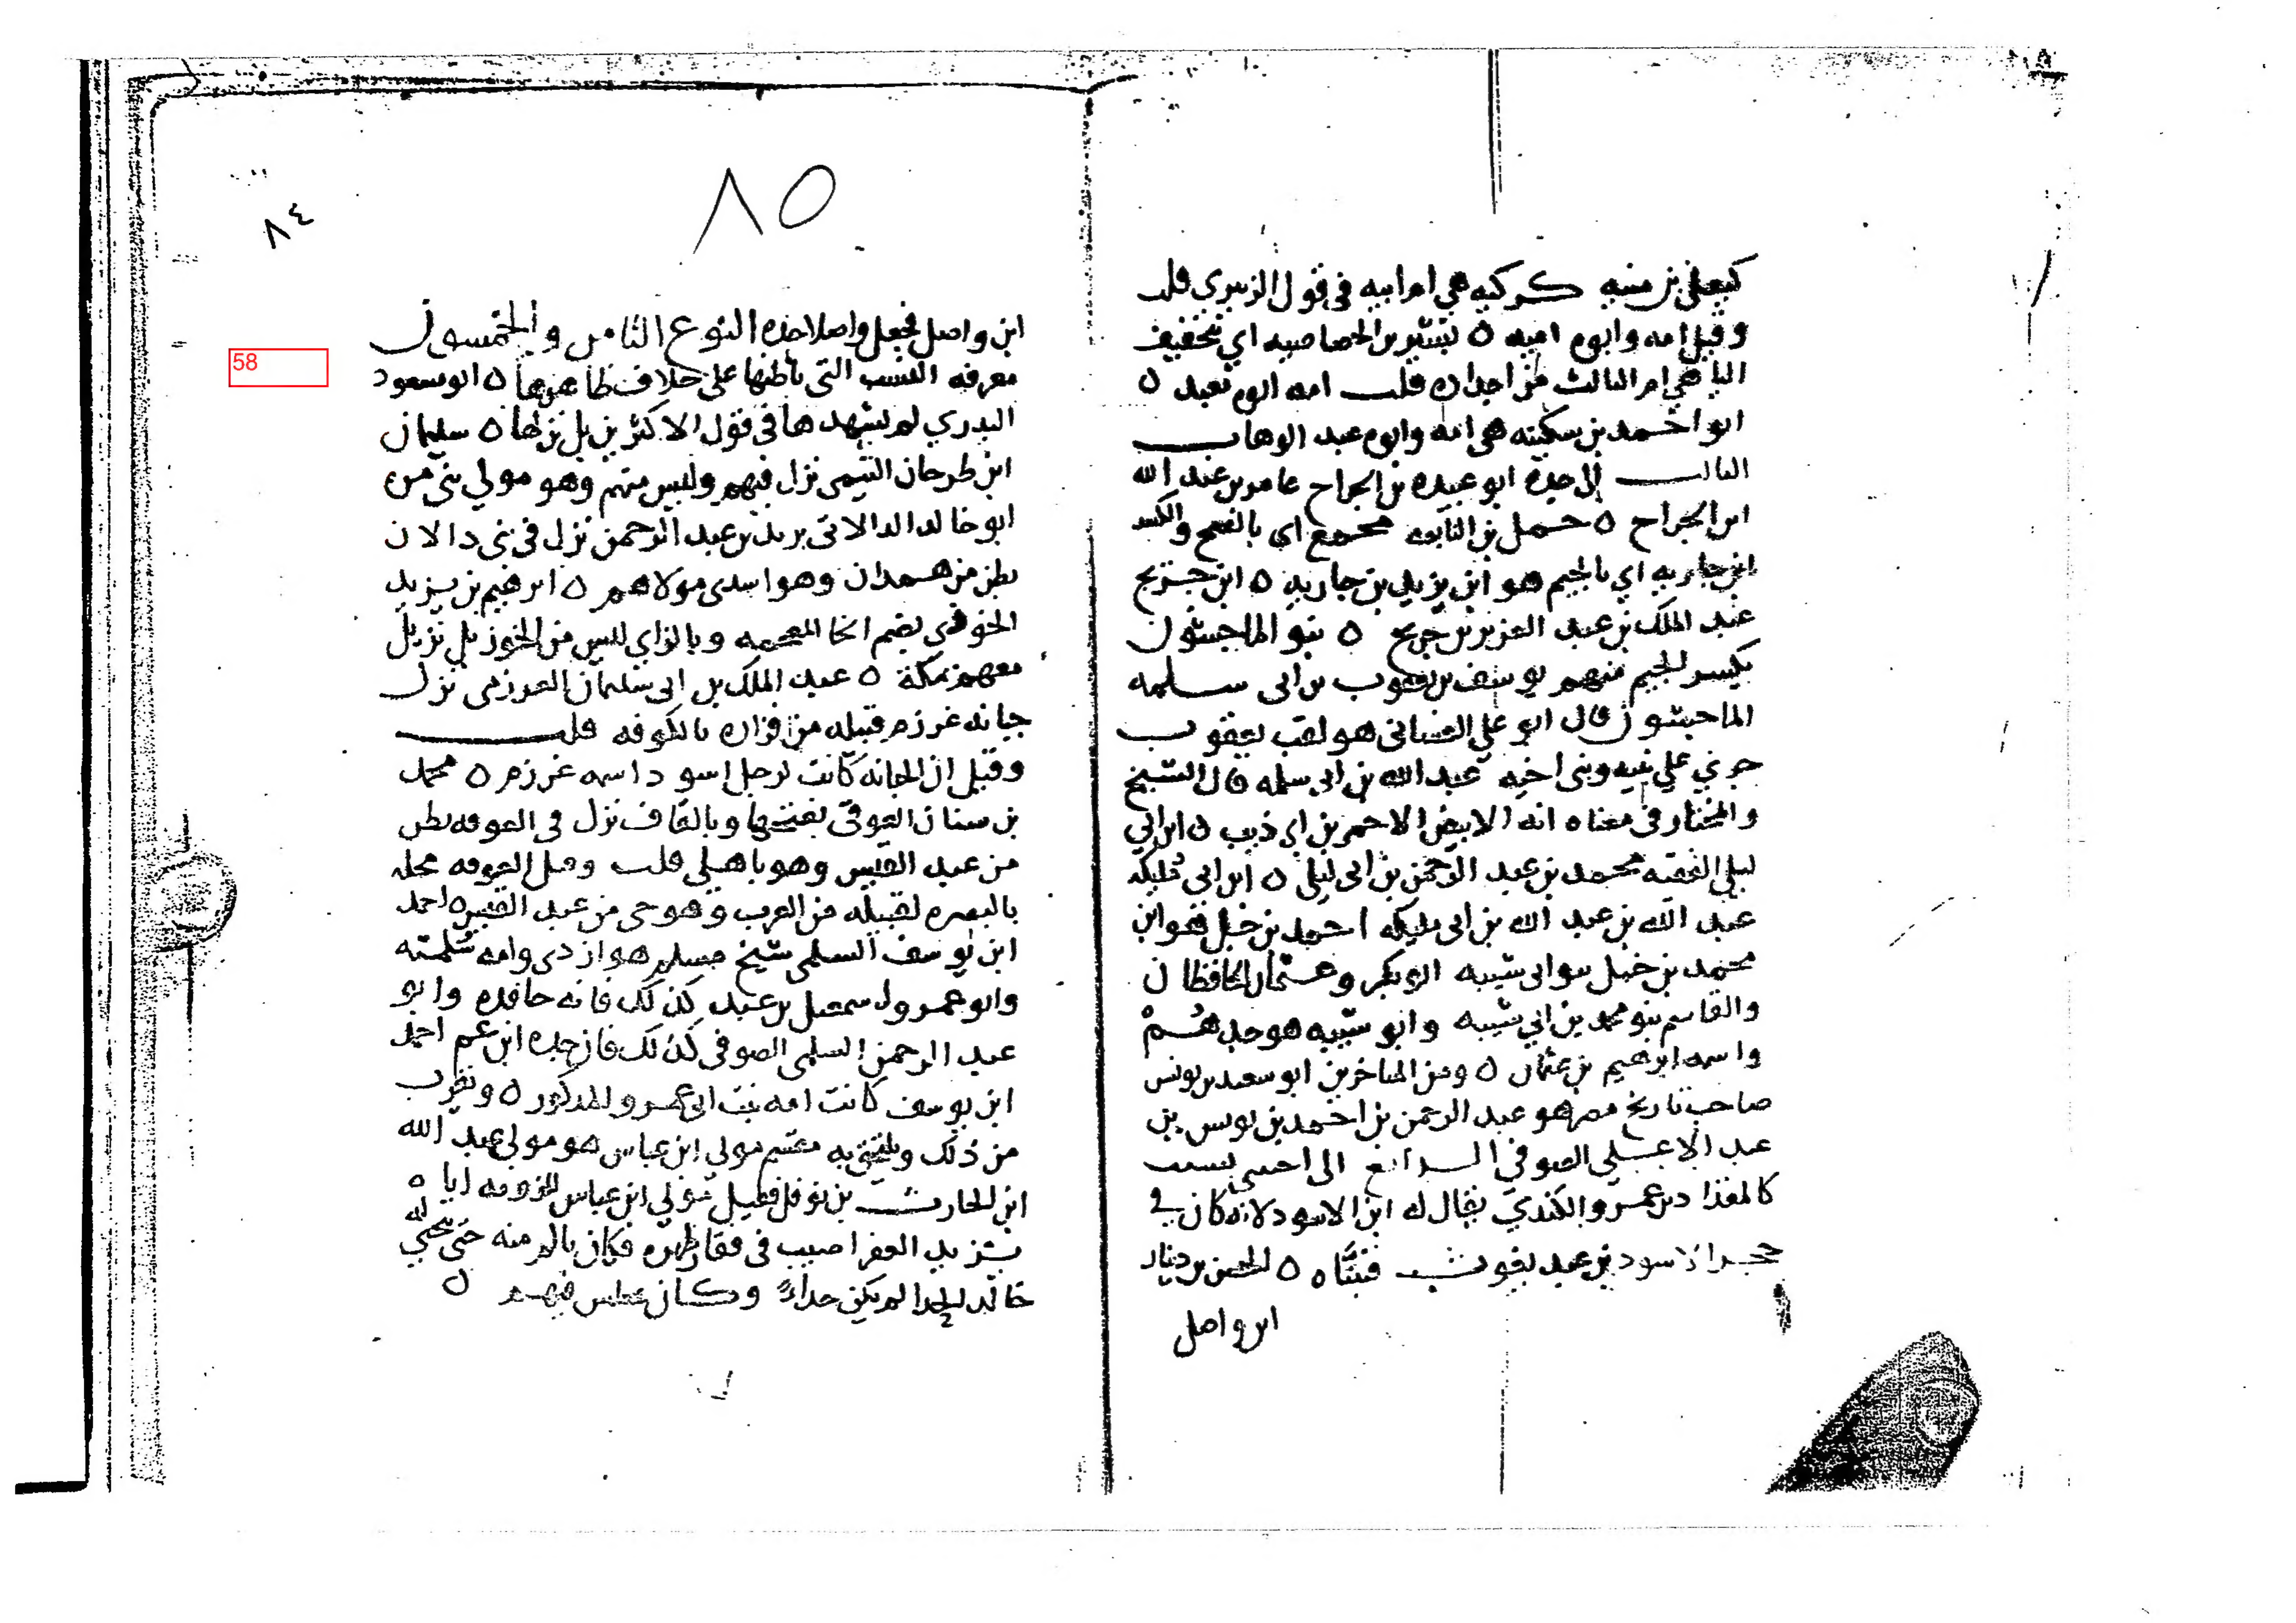 كيعلى بن منيه كركبه هي ام ابيه في قول الزبيري قلت
وقيل امه وابوه اميه ٥ بشير بن الخصاصيه اي بتخفيف
اليا هي ام الثالث من اجداده قلت امه ابوه معبد ٥
ابو احمد بن سكينه هي امه وابوه عبد الوهاب
الثالث الى جده ابو عبيده بن الجراح عامر بن عبد الله
ابن الجراح ٥ حمل بن النابغه مجمع اي بالفتح والكسر
ابن جاريه اي بالجيم هو ابن يزيد بن جاريه ٥ ابن جريج
عبد الملك بن عبد العزيز بن جريج ٥ بنو الماجشون
بكسر الجيم منهم يوسف بن يعقوب بن ابي سلمه
الماجشون قال ابو علي الغساني هو لقب يعقوب
جري على بنيه وبني اخيه عبد الله بن ابي سلمه قال الشيخ
والمختار في معناه انه الابيض الاحمر بن ابي ذيب ٥ ابن ابي
ليلى الفقيه محمد بن عبد الرحمن بن ابي ليلى ٥ ابن ابي مليكه
عبد الله بن عبد الله بن ابي مليكه احمد بن حنبل هو ابن
محمد بن حنبل بنو ابي شيبه ابو بكر وعثمان الحافظان
والقاسم بنو محمد بن ابي شيبه وابو شيبه هو جدهم
واسمه ابرهيم بن عثمان ٥ ومن المتاخرين ابو سعيد بن يونس
صاحب تاريخ مصر هو عبد الرحمن بن احمد بن يونس بن
عبد الاعلى الصوفي الرابع الى اجنبي بسبب
كالمقداد بن عمرو الكندي يقال له ابن الاسود لانه كان في
حجر الاسود بن عبد يغوث فتبناه ٥ الحسن بن دينار
ابن واصل
٨٥
٨٤
ابن واصل فجعل واصلا جده النوع الثامن والخمسون
58
معرفه النسب التي باطنها على خلاف ظاهرها ٥ ابو مسعود
البدري لم يشهدها في قول الاكثرين بل نزلها ٥ سليمان
ابن طرخان التيمي نزل فيهم وليس منهم وهو مولي بني مره
ابو خالد الدالاني يزيد بن عبد الرحمن نزل في بني دالان
بطن من همدان وهو اسدي مولاهم ٥ ابرهيم بن يزيد
الخوزي بضم الخا المعجمه وبالزاي ليس من الخوز بل نزل
معهم بمكة ٥ عبد الملك بن ابي سليمان العرزمي نزل
جبانه عرزم قبيله من فزاره بالكوفه قلت
وقيل ان الجبانه كانت لرجل اسود اسمه عرزم ٥ محمد
بن سنان العوقي بفتحها وبالقاف نزل في العوقه بطن
من عبد القيس وهو باهلي قلت وقيل العوقه محله
بالبصره لقبيله من العرب وهو حي من عبد القيس ٥ احمد
ابن يوسف السلمي شيخ مسلم هو ازدي وامه سلميه
وابو عمرو اسمعيل بن نجيد كذلك فانه حافده وابو
عبد الرحمن السلمي الصوفي كذلك فان جده ابن عم احمد
ابن يوسف كانت امه بنت ابي عمرو المذكور ٥ ويقرب
من ذلك ويلتحق به مقسم مولي ابن عباس هو مولي عبد الله
ابن الحارث بن نوفل فقيل مولي ابن عباس للزومه اياه
يزيد الفقير اصيب في فقار ظهره فكان يالم منه حتى ينحني له
خالد الحذا لم يكن حذاءً وكان يجلس فيهم ٥